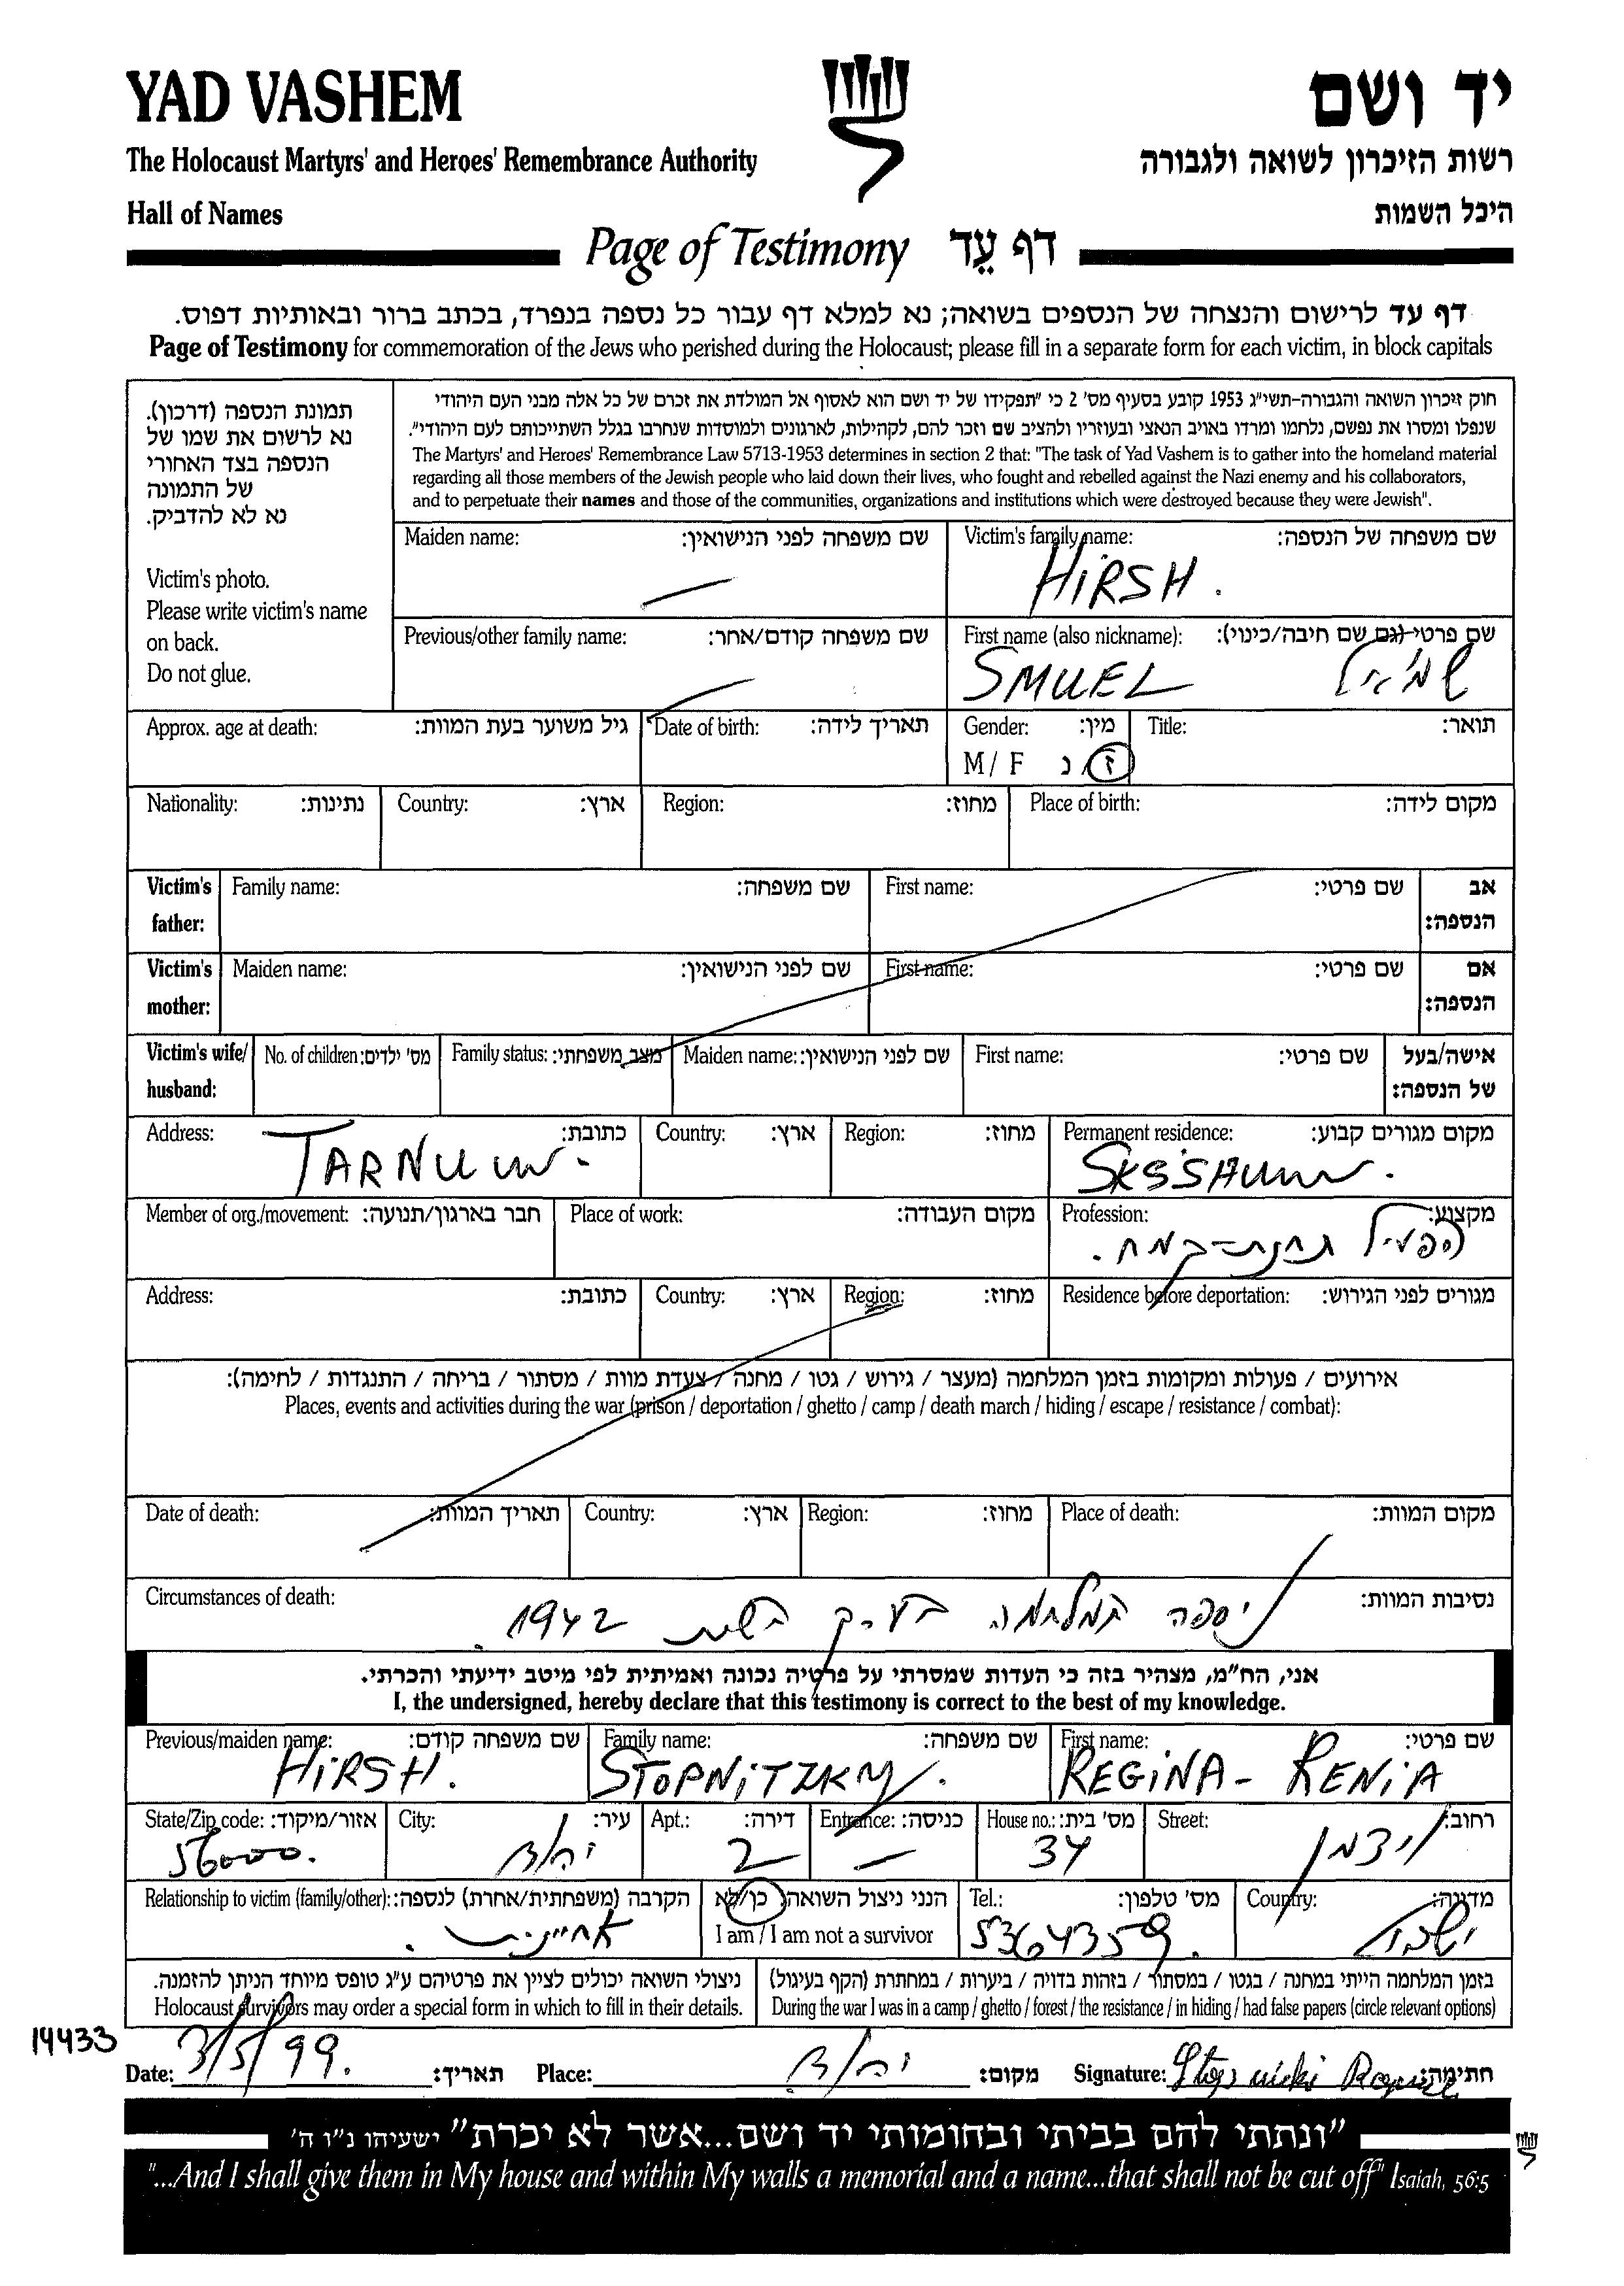 YAD VASHEM
יד ושם
The Holocaust Martyrs' and Heroes' Remembrance Authority
רשות הזיכרון לשואה ולגבורה
Hall of Names
היכל השמות
Page of Testimony דף עֵד
דף עד לרישום והנצחה של הנספים בשואה; נא למלא דף עבור כל נספה בנפרד, בכתב ברור ובאותיות דפוס.
Page of Testimony for commemoration of the Jews who perished during the Holocaust; please fill in a separate form for each victim, in block capitals
תמונת הנספה (דרכון).
נא לרשום את שמו של
הנספה בצד האחורי
של התמונה
נא לא להדביק.
Victim's photo.
Please write victim's name
on back.
Do not glue.
חוק זיכרון השואה והגבורה-תשי"ג 1953 קובע בסעיף מס' 2 כי "תפקידו של יד ושם הוא לאסוף אל המולדת את זכרם של כל אלה מבני העם היהודי
שנפלו ומסרו את נפשם, נלחמו ומרדו באויב הנאצי ובעוזריו ולהציב שם וזכר להם, לקהילות, לארגונים ולמוסדות שנחרבו בגלל השתייכותם לעם היהודי".
The Martyrs' and Heroes' Remembrance Law 5713-1953 determines in section 2 that: "The task of Yad Vashem is to gather into the homeland material
regarding all those members of the Jewish people who laid down their lives, who fought and rebelled against the Nazi enemy and his collaborators,
and to perpetuate their names and those of the communities, organizations and institutions which were destroyed because they were Jewish".
Maiden name: שם משפחה לפני הנישואין:
Victim's family name: שם משפחה של הנספה:
HIRSH.
Previous/other family name: שם משפחה קודם/אחר:
First name (also nickname): שם פרטי (גם שם חיבה/כינוי):
SMUEL שמואל
Approx. age at death: גיל משוער בעת המוות:
Date of birth: תאריך לידה:
Gender: מין:
M / F ז / נ
Title: תואר:
Nationality: נתינות:
Country: ארץ:
Region: מחוז:
Place of birth: מקום לידה:
Victim's father:
Family name: שם משפחה:
First name: שם פרטי:
אב הנספה:
Victim's mother:
Maiden name: שם לפני הנישואין:
First name: שם פרטי:
אם הנספה:
Victim's wife/ husband:
No. of children: מס' ילדים:
Family status: מצב משפחתי:
Maiden name: שם לפני הנישואין:
First name: שם פרטי:
אישה/בעל של הנספה:
Address: כתובת:
TARNUW.
Country: ארץ:
Region: מחוז:
Permanent residence: מקום מגורים קבוע:
Member of org./movement: חבר בארגון/תנועה:
Place of work: מקום העבודה:
Profession: מקצוע:
הפעיל תחנת-קמח.
Address: כתובת:
Country: ארץ:
Region: מחוז:
Residence before deportation: מגורים לפני הגירוש:
אירועים / פעולות ומקומות בזמן המלחמה (מעצר / גירוש / גטו / מחנה / צעדת מוות / מסתור / בריחה / התנגדות / לחימה):
Places, events and activities during the war (prison / deportation / ghetto / camp / death march / hiding / escape / resistance / combat):
Date of death: תאריך המוות:
Country: ארץ:
Region: מחוז:
Place of death: מקום המוות:
Circumstances of death: נסיבות המוות:
ניספה במלחמה בערך בשנת 1942.
אני, הח"מ, מצהיר בזה כי העדות שמסרתי על פרטיה נכונה ואמיתית לפי מיטב ידיעתי והכרתי.
I, the undersigned, hereby declare that this testimony is correct to the best of my knowledge.
Previous/maiden name: שם משפחה קודם:
HIRSH.
Family name: שם משפחה:
STOPNITZKY.
First name: שם פרטי:
REGINA - RENIA
State/Zip code: אזור/מיקוד:
56000.
City: עיר:
יהוד
Apt.: דירה:
2
Entrance: כניסה:
House no.: מס' בית:
34
Street: רחוב:
ויצמן
Relationship to victim (family/other): הקרבה (משפחתית/אחרת) לנספה:
אחיינית.
הנני ניצול השואה: כן/לא
I am / I am not a survivor
Tel.: מס' טלפון:
5364359.
Country: מדינה:
ישראל
ניצולי השואה יכולים לציין את פרטיהם ע"ג טופס מיוחד הניתן להזמנה.
Holocaust survivors may order a special form in which to fill in their details.
בזמן המלחמה הייתי במחנה / בגטו / במסתור / בזהות בדויה / ביערות / במחתרת (הקף בעיגול)
During the war I was in a camp / ghetto / forest / the resistance / in hiding / had false papers (circle relevant options)
14433
Date: 3/5/99. תאריך:
Place: יהוד מקום:
Signature: חתימה:
"ונתתי להם בביתי ובחומותי יד ושם...אשר לא יכרת" ישעיהו נ"ו ה'
"...And I shall give them in My house and within My walls a memorial and a name...that shall not be cut off" Isaiah, 56:5